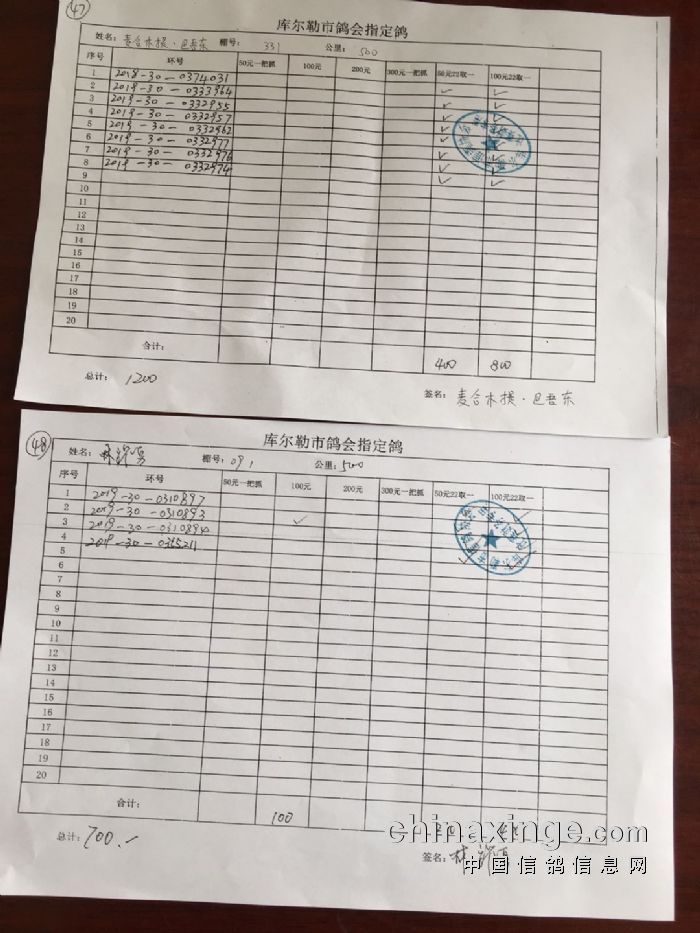 47
库尔勒市鸽会指定鸽
姓名：麦合木提·巴吾东 棚号：331 公里：500
序号 环号 50元一把抓 100元 200元 300元一把抓 50元22取一 100元22取一
1 2018-30-0374031
2 2019-30-0333364 ✓ ✓
3 2019-30-0332955 ✓ ✓
4 2019-30-0332957 ✓
5 2019-30-0332962 ✓
6 2019-30-0332977 ✓
7 2019-30-0332976 ✓ ✓
8 2019-30-0332974 ✓ ✓
9 ✓ ✓
10
11
12
13
14
15
16
17
18
19
20
合计： 400 800
总计：1200
签名：麦合木提·巴吾东
48
库尔勒市鸽会指定鸽
姓名：林 棚号：091 公里：500
序号 环号 50元一把抓 100元 200元 300元一把抓 50元22取一 100元22取一
1 2019-30-0310897
2 2019-30-0310893 ✓
3 2019-30-0310894
4 2019-30-0365211
5
6
7
8
9
10
11
12
13
14
15
16
17
18
19
20
合计： 100
总计：700.-
签名：林
chinaxinge.com
中国信鸽信息网